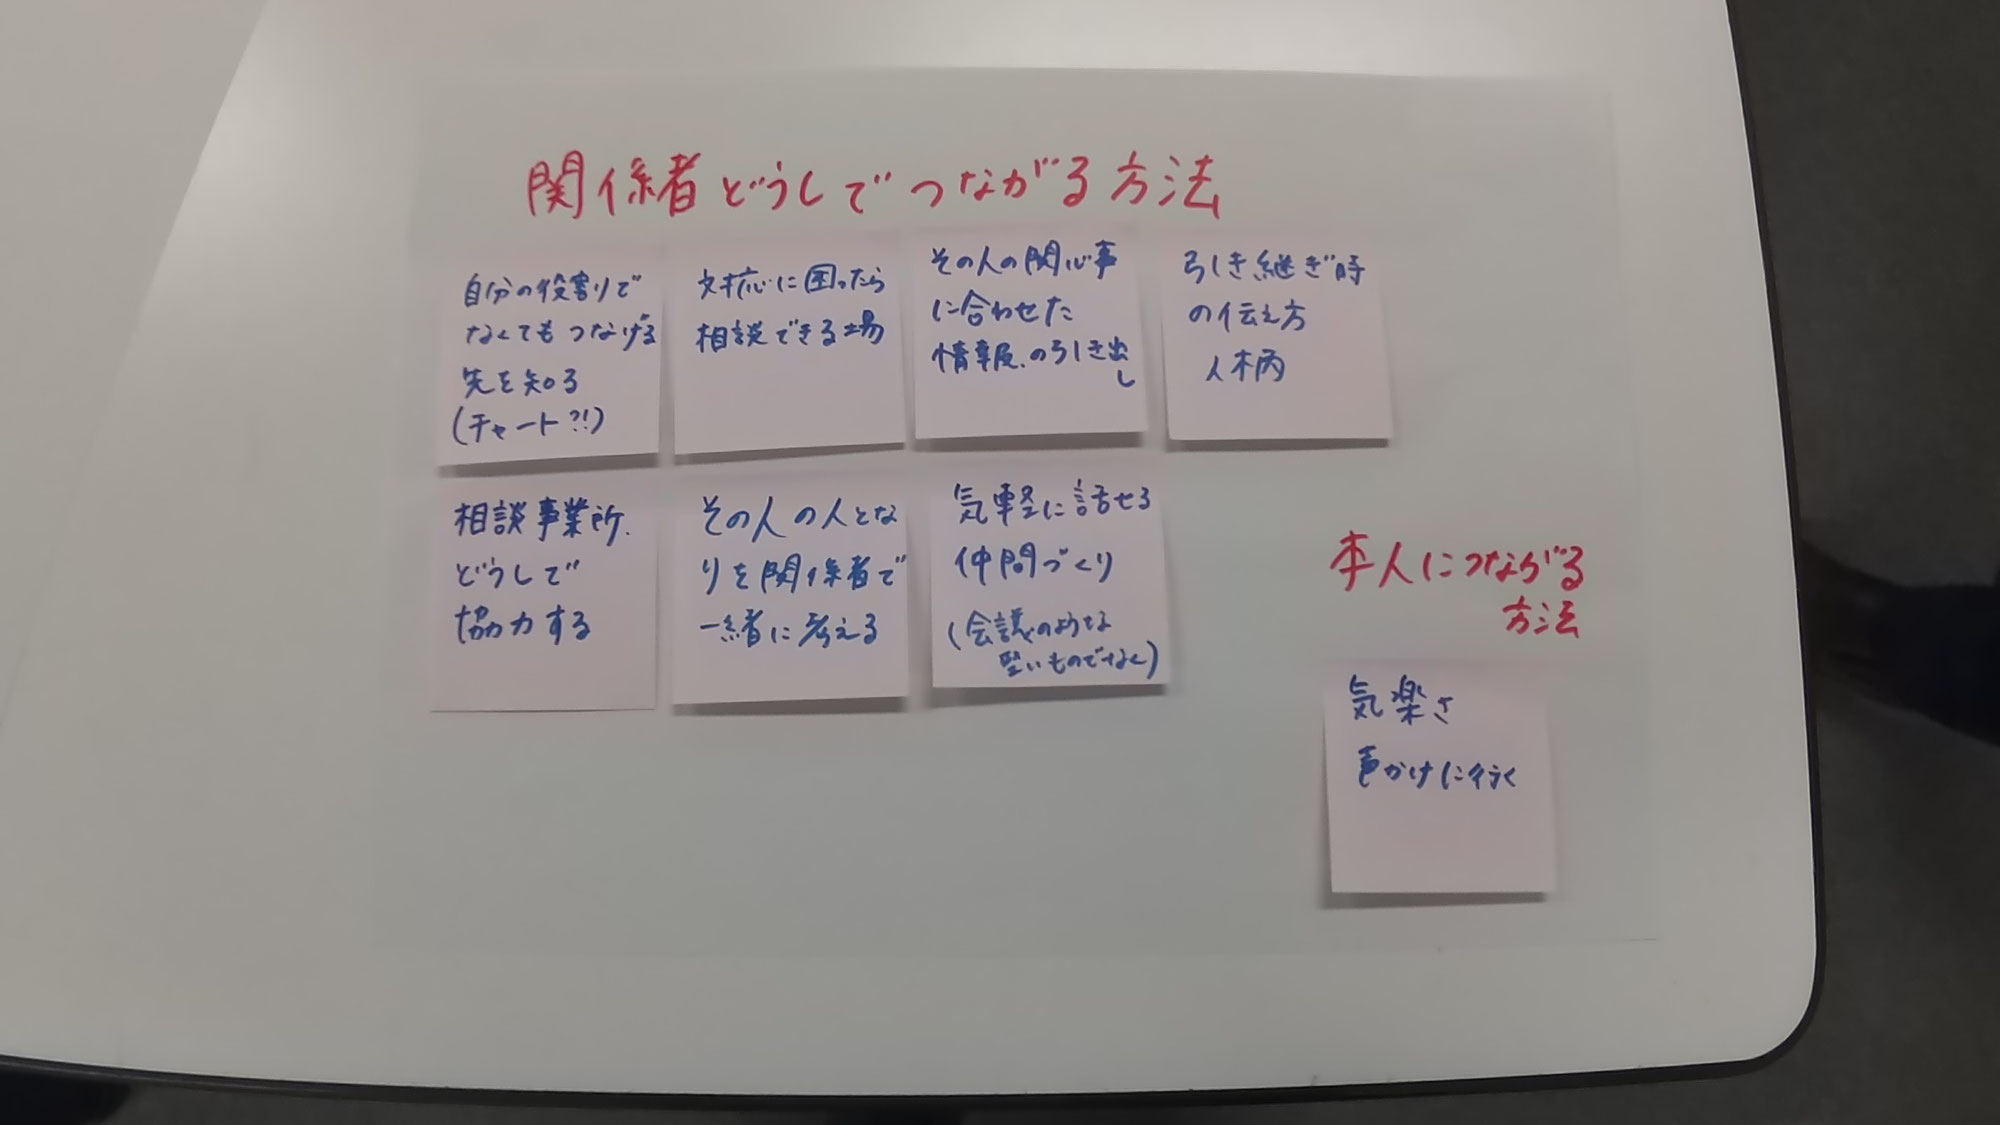 関係者どうしでつながる方法
自分の役割りで
なくてもつなげる
先を知る
(チャート?!)
対応に困ったら
相談できる場
その人の関心事
に合わせた
情報の引き出
し
引き継ぎ時
の伝え方
人柄
相談事業所
どうしで
協力する
その人の人とな
りを関係者で
一緒に考える
気軽に話せる
仲間づくり
(会議のような
堅いものでなく)
本人につながる
方法
気楽さ
声かけに行く